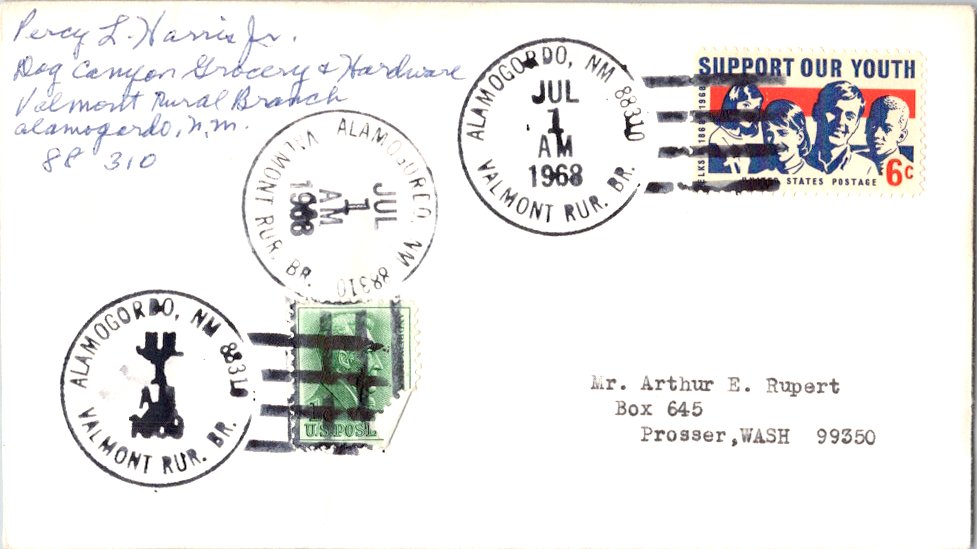 Percy L. Harris Jr.
Dog Canyon Grocery & Hardware
Valmont Rural Branch
alamogordo, n.m.
88 310
ALAMOGORDO, NM 88310
JUL
1
AM
1968
VALMONT RUR. BR.
SUPPORT OUR YOUTH
ELKS 1868 1968
UNITED STATES POSTAGE
6c
ALAMOGORDO, NM 88310
JUL
1
AM
1968
VALMONT RUR. BR.
ALAMOGORDO, NM 88310
VALMONT RUR. BR.
U.S. POS
Mr. Arthur E. Rupert
Box 645
Prosser,WASH 99350